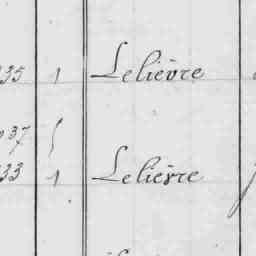 35 1 Lelièvre
37
33 1 Lelièvre